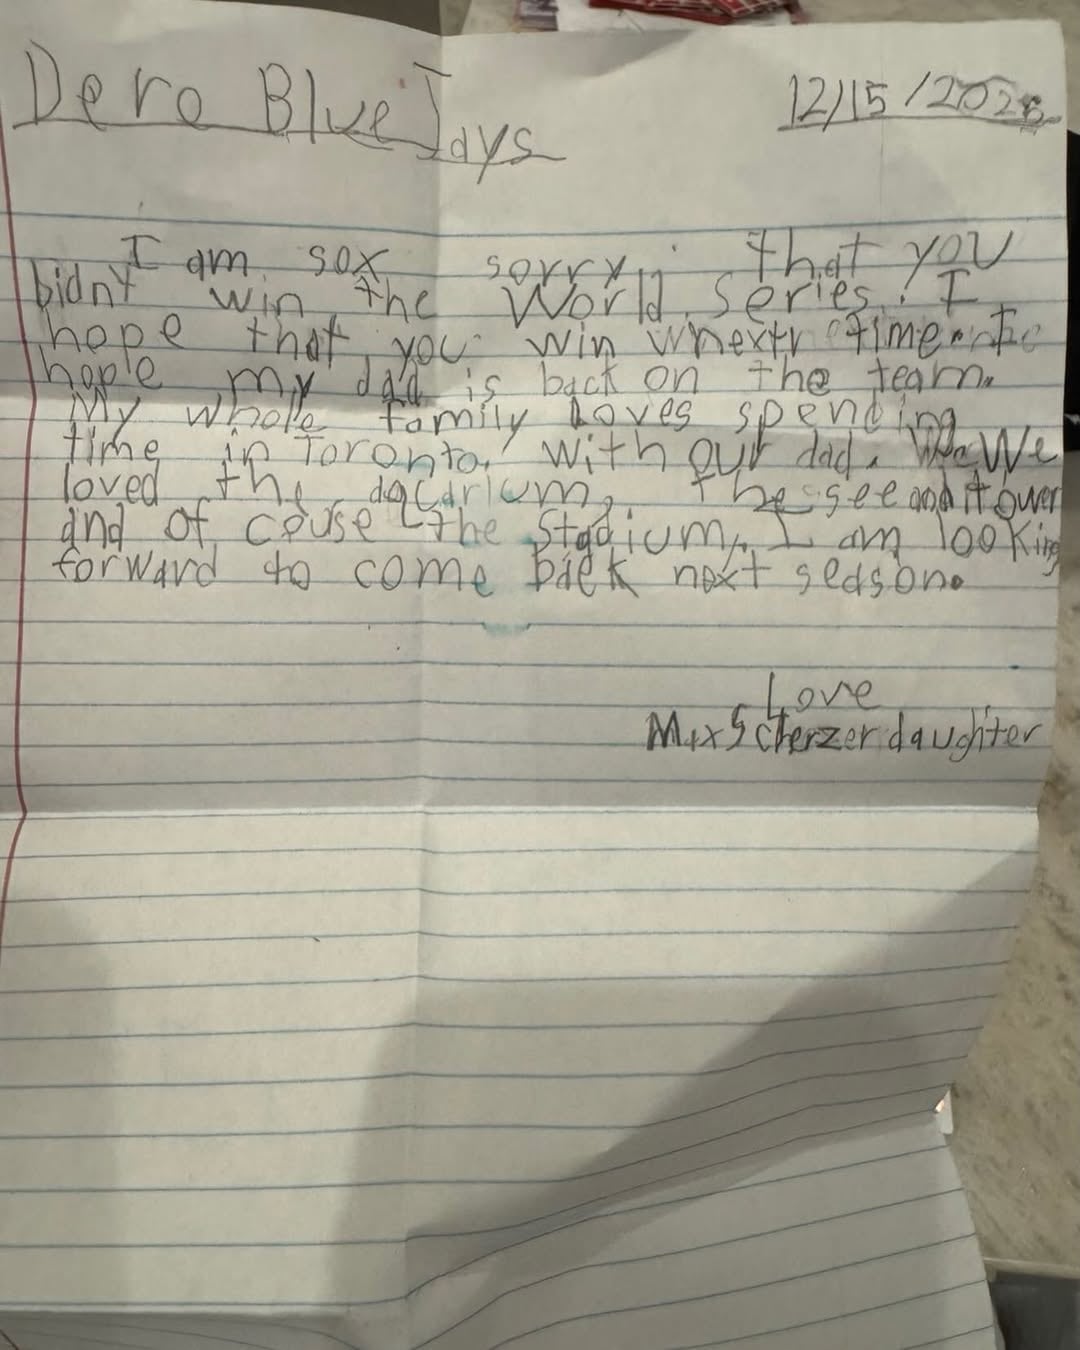 Dero Blue Jays
12/15/2025
I am sox sorry that you
bidnt win the World series. I
hope that you win whextr time. I
hope my dad is back on the team.
My whole family Loves spending
time in Toronto. With our dad. We We
loved the aqcarium, the seeandtower
and of couse the stadium. I am looking
forward to come back next season.
Love
Max Scherzer daughter